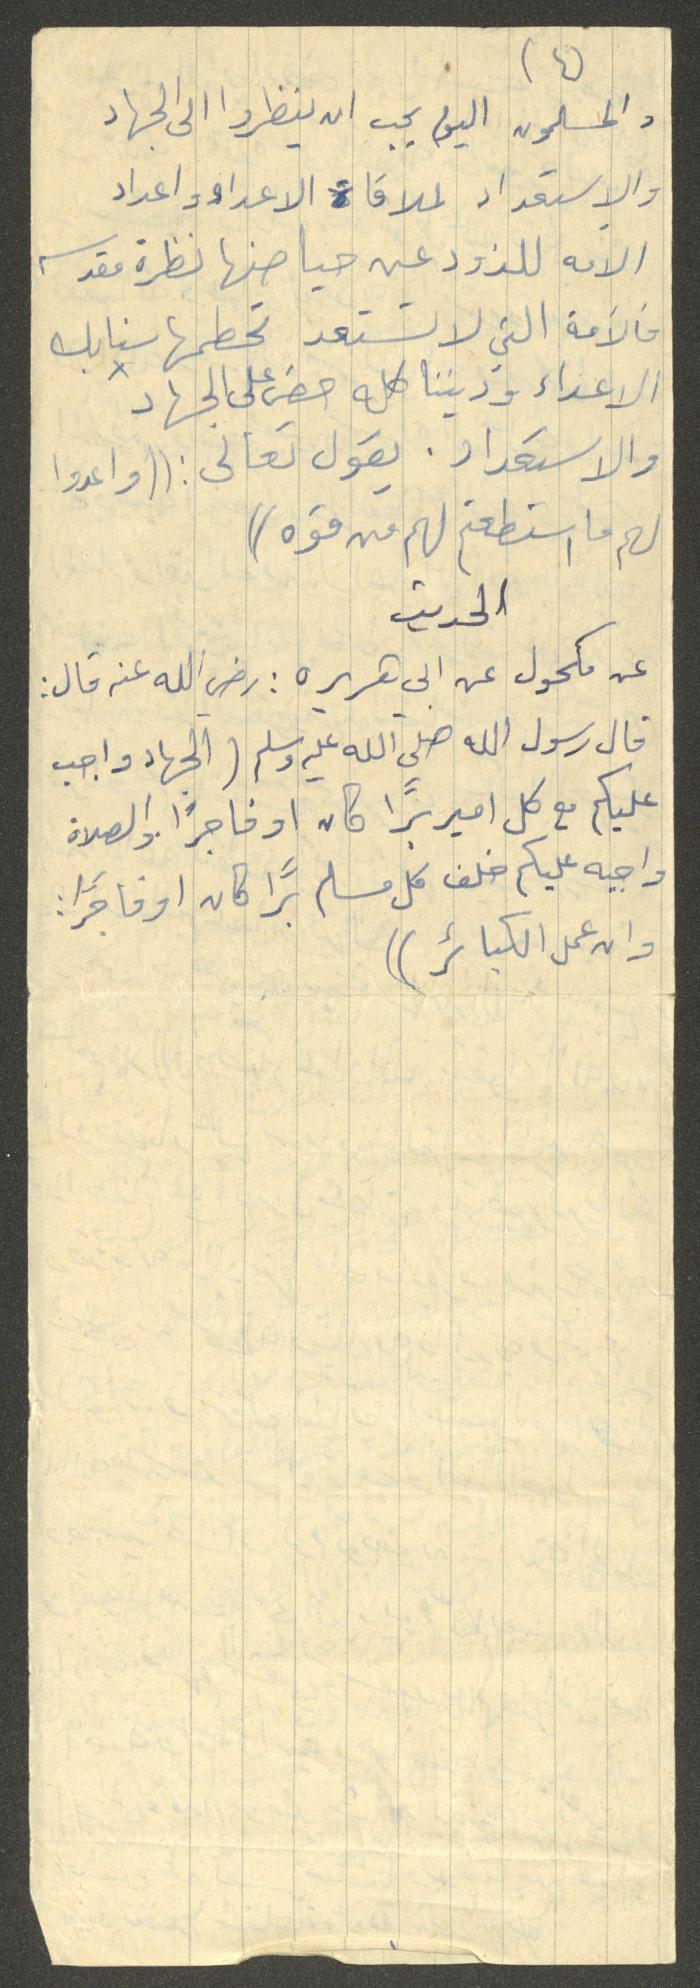 (٤)
والمسلمون اليوم يجب ان ينظروا الى الجهاد
والاستعداد لملاقاة الاعداء واعداد
الامه للذود عن حياضها نظرة مقدسه
فالأمة التي لا تستعد تحطمها سنابك
الاعداء وديننا كله حض على الجهاد
والاستعداد . يقول تعالى : ((واعدوا
لهم ما استطعتم لهم من قوه))
الحديث
عن مكحول عن ابي هريره : رضي الله عنه قال :
قال رسول الله صلى الله عليه وسلم ( الجهاد واجب
عليكم مع كل امير برًا كان او فاجرًا. والصلاة
واجبه عليكم خلف كل مسلم برًا كان او فاجرًا :
وان عمل الكبائر ))